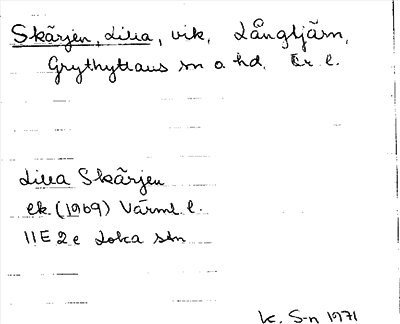 Skärjen, Lilla, vik, Långtjärn,
Grythyttans sn o hd. Ör. l.
Lilla Skärjen
ek. (1969) Värml l.
11E 2e Loka stn
K. S-n 1971